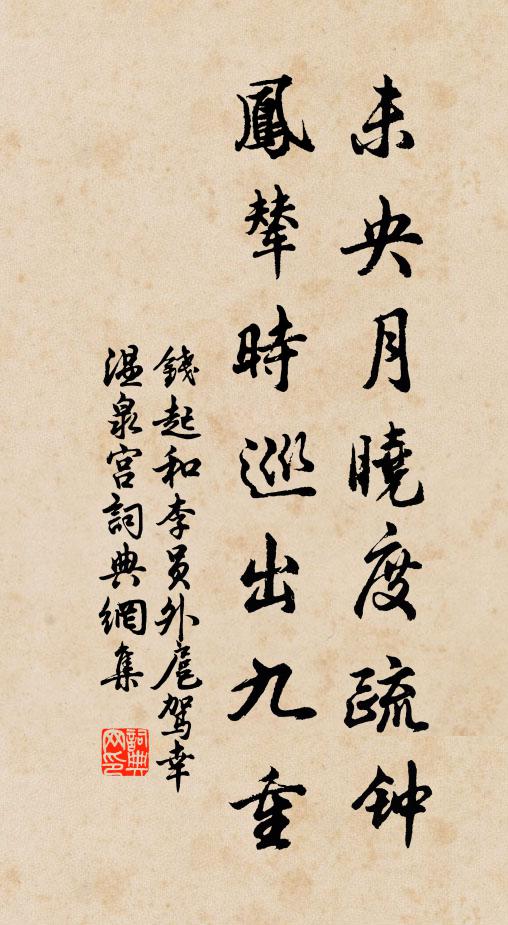 未央月曉度疏鐘
鳳輦時巡出九重
錢起和李員外扈駕幸
溫泉宮詞典網集
詞典
网印